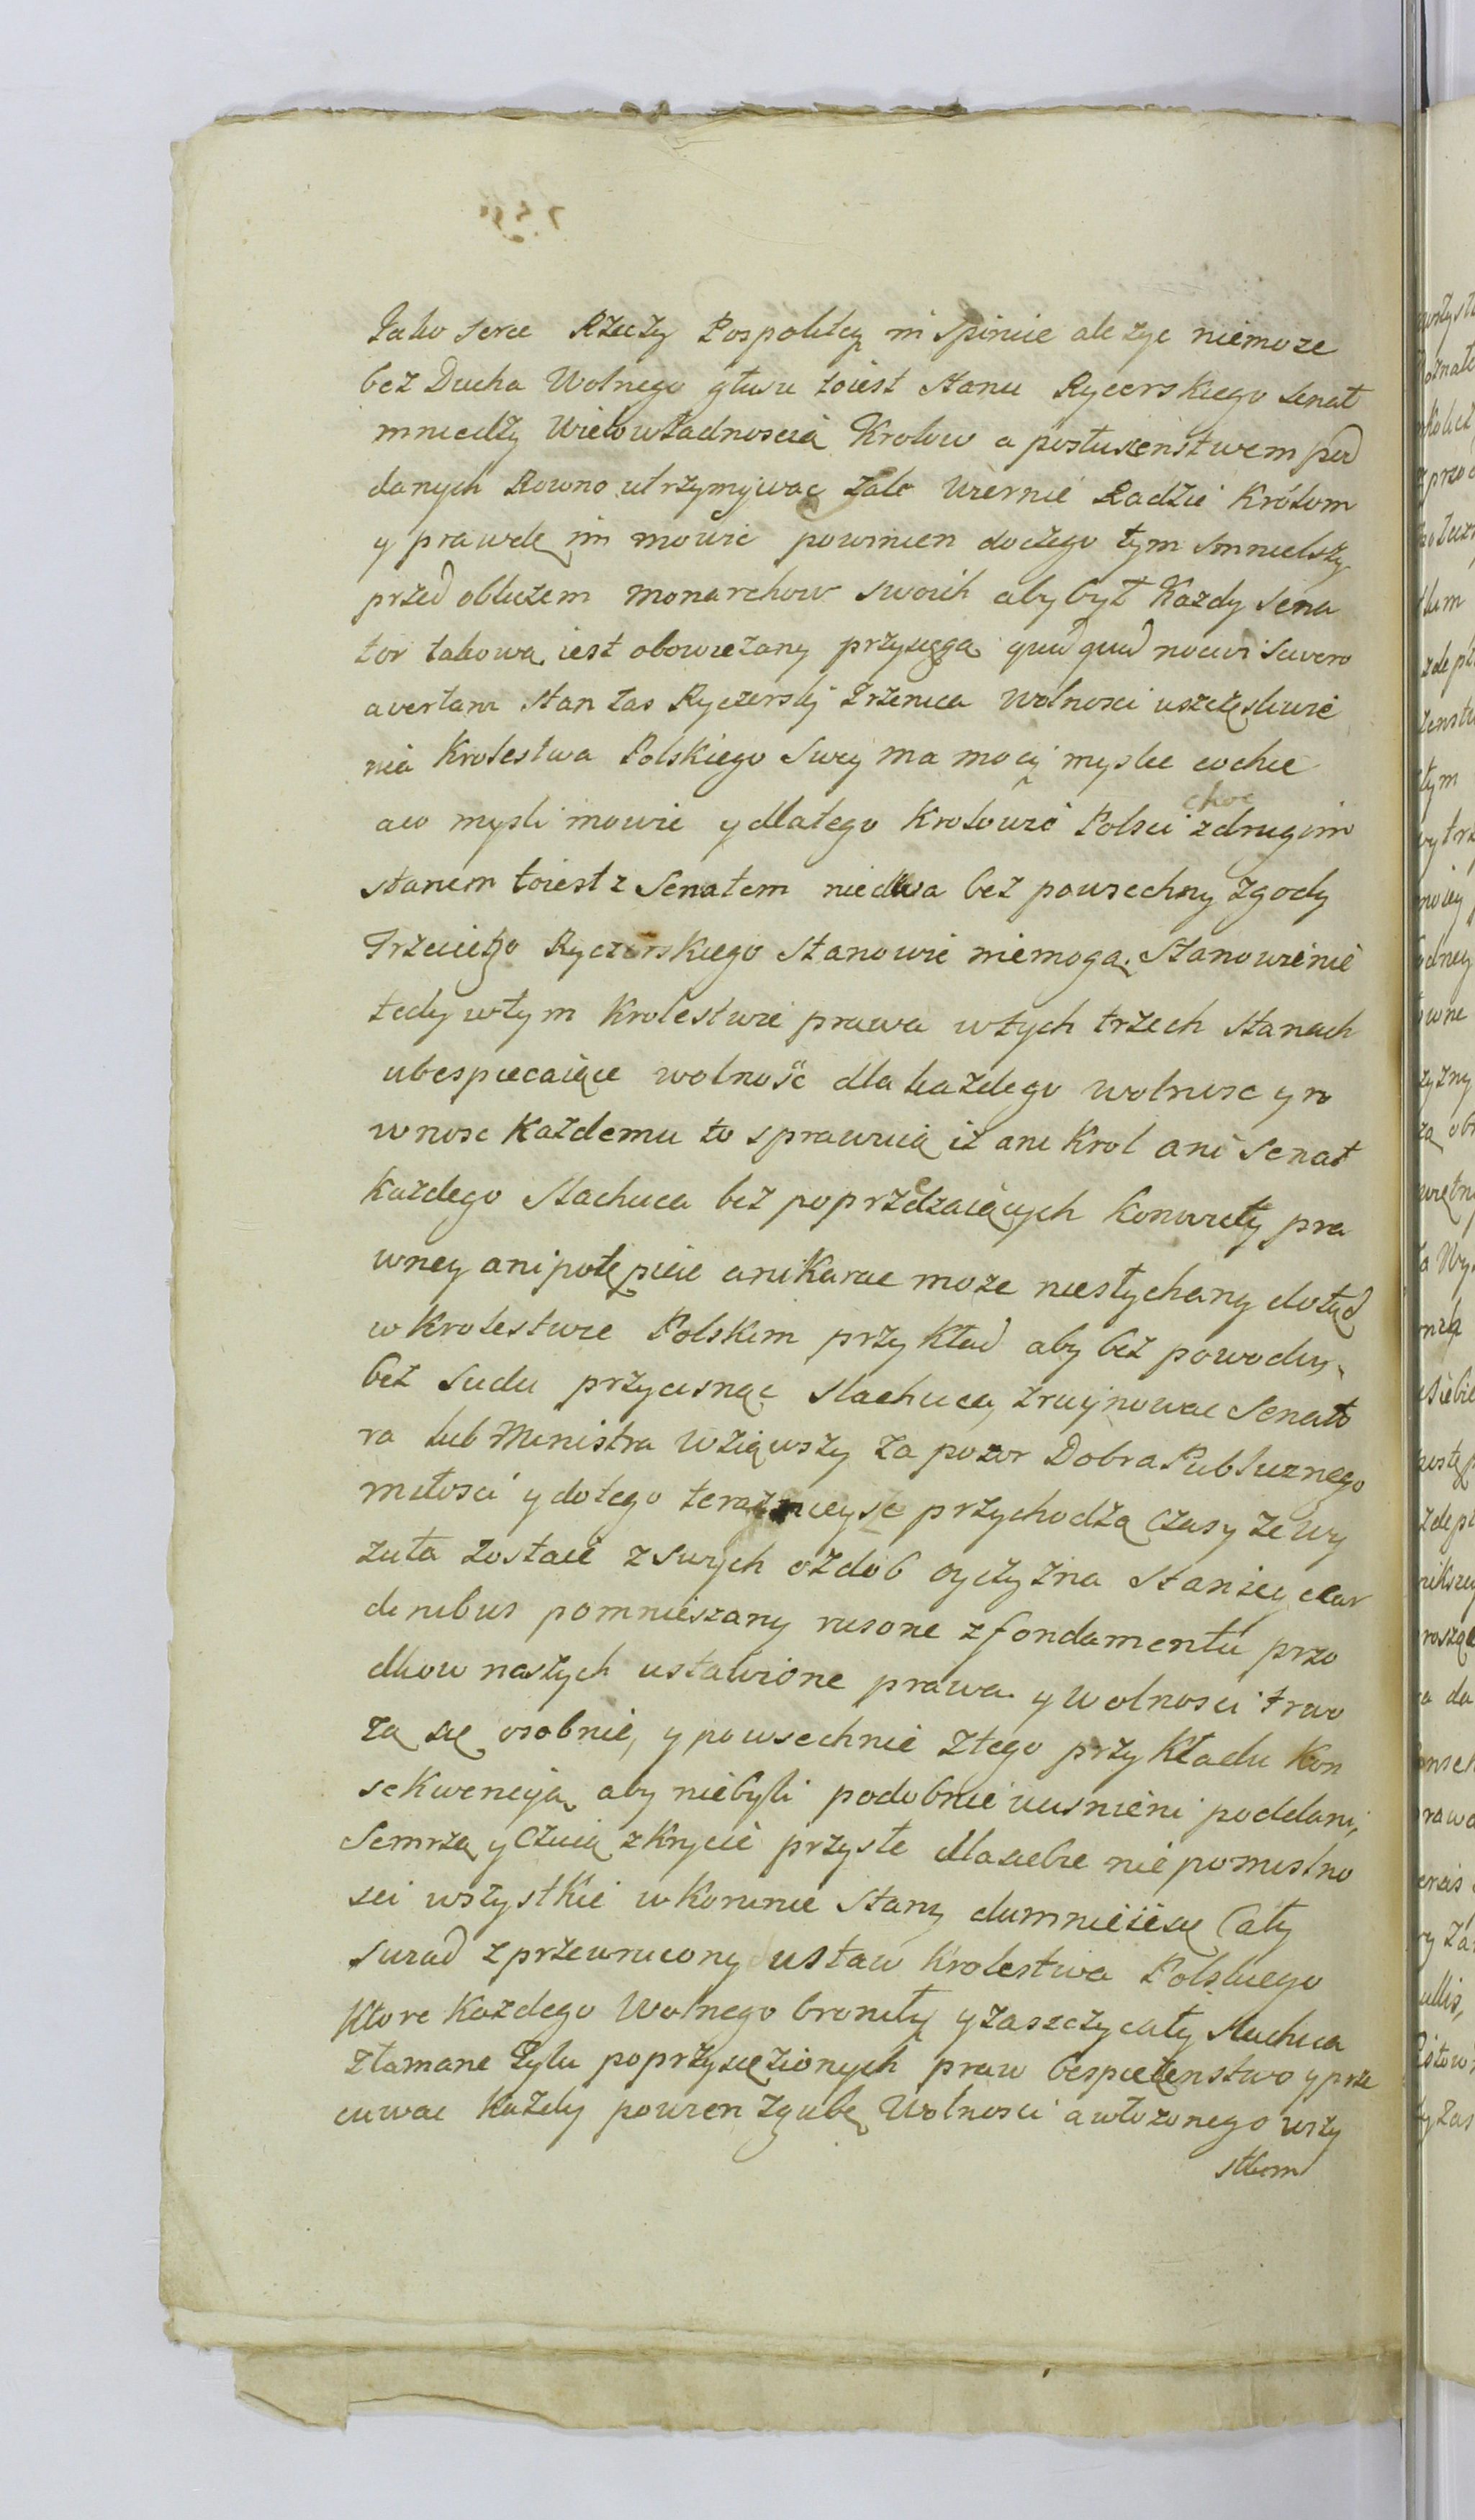 Jako serce Rzeczy Pospolitey ni spinie ale zyc niemoze
bez Ducha Wolnego głusu toiest stanu Rycerskiego Senat
mniedzy Wielowładnoscią Krolow a posłuszenstwem pod
danych Rowno utrzymywac zale Wiernie Radzic Królom
y prawdę im mowic powinien doczego tym smnielszy
przed obliczem monarchow swoich aby był Kazdy Sena
tor takową iest obowiezany przysięgą quid quid nocivi Sivero
avertam stan zas Ryczerskij Zrzenica Wolnosci uszczęsliwie
nia Krolestwa Polskiego Swey ma mocy myslec cochce
aco mysli mowic y dlatego Krolowie Polsci choc zdrugim
stanem toiest z Senatem niedwa bez powsechny zgody
Trzeciego Ryczerskiego Stanowic niemogą Stanowienie
tedy wtym Krolestwie prawa wtych trzech stanach
ubespiecaiące wolność dla każdego wolnosc y ro
wnosc Każdemu to sprawuią iż ani Krol ani Senat
Każdego Slachcica bez poprzedzaiących Konwicty pra
wney ani potępicie ani Karac moze niesłychany dotąd
w Krolestwie Polskim przykład aby bez powodu,
bez Sudu przycisnąc Slachcica, zruynowac Senato
ra lub Ministra wziąwszy za pozor Dobra Publicznego
miłosci y dotego teraznieyse przychodzą Czasy ze wy
zuta zostaie z swych ozdob oyczyzna Staniey clar
denibus pomnieszany rusone z fondamentu przo
dkow naszych ustawione prawa y wolnosci trwo
zą się osobnie, y powsechnie Złego przykładu Kon
sekwencyją aby niebyli podobnie ucisnieni poddani,
Semrzą y Czuią zkrycie przyszłe dlasiebie nie pomislno
sci wszystkie w Koronie Stany dumnieiesię Cały
swiad z przewrucony ustaw Krolestwa Polskiego
Ktore Kazdego Wolnego broniły y zaszczycały Slachcica
Złamane Tylu poprzysięzionych praw bespieczenstwo y prze
cuwac Każdy powien zgubę Wolnosci a włozonego wszy
stkim